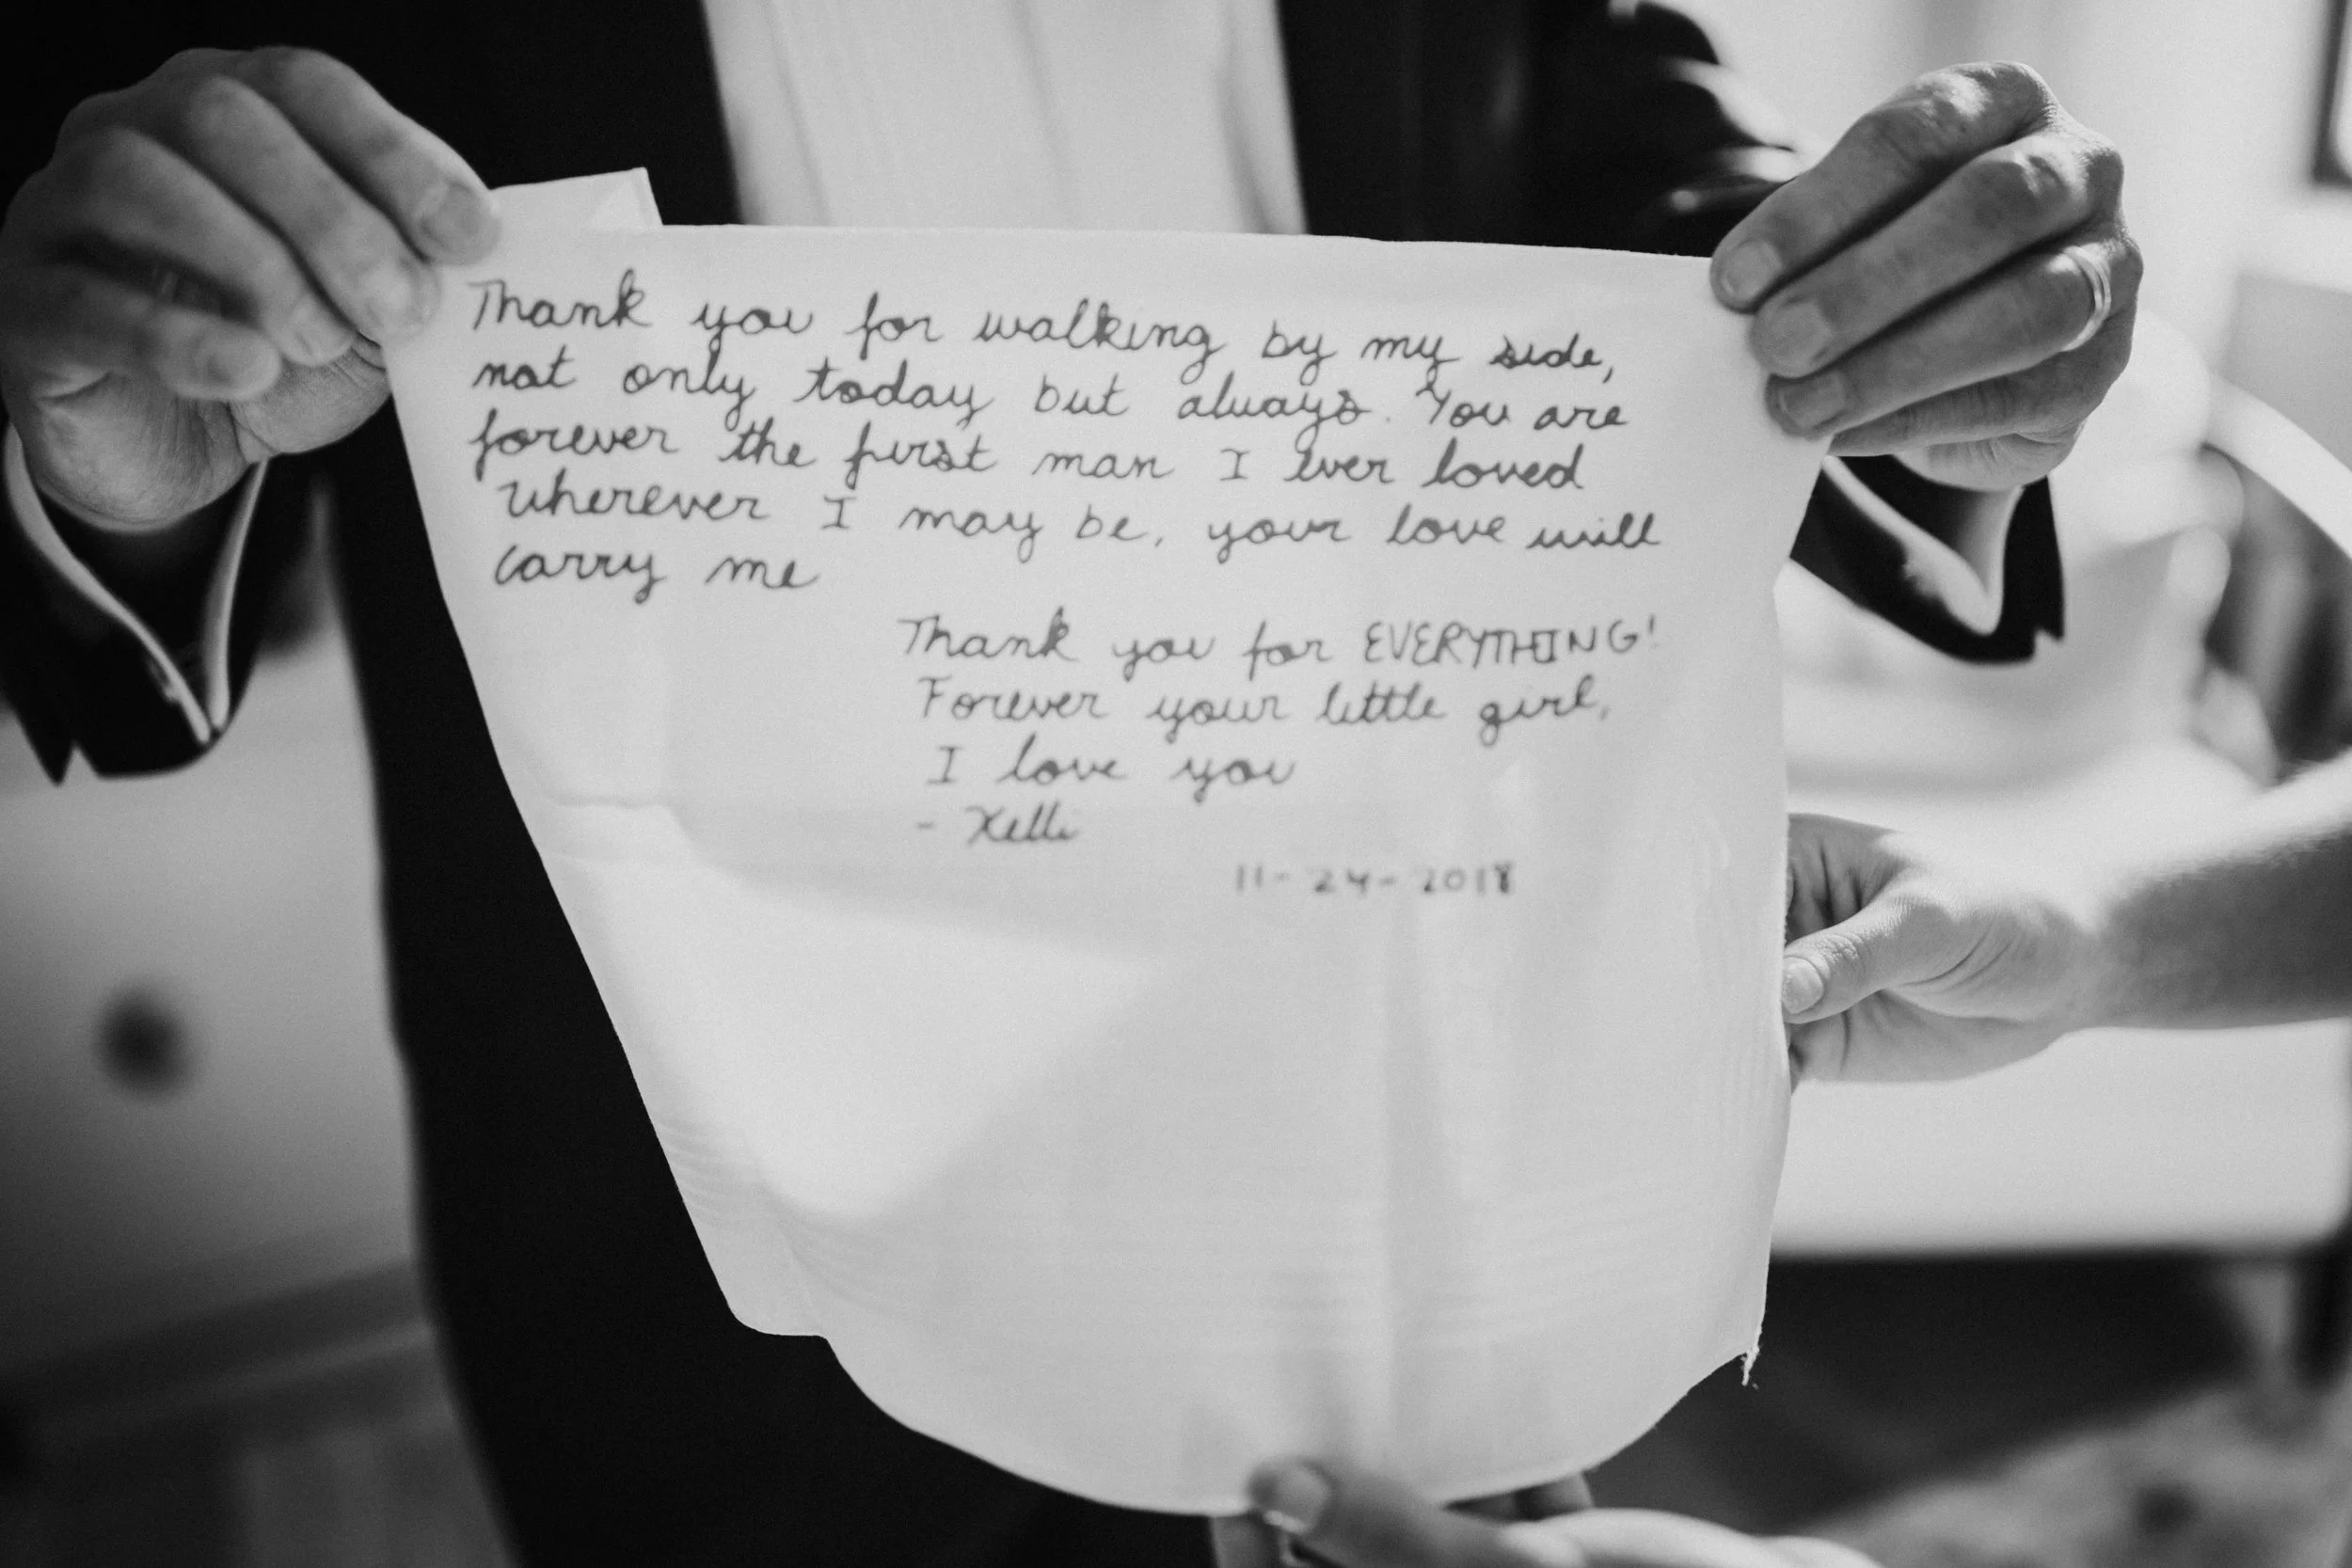 Thank you for walking by my side,
not only today but always. You are
forever the first man I ever loved
Wherever I may be, your love will
carry me
Thank you for EVERYTHING!
Forever your little girl,
I love you
- Kelli
11-24-2018